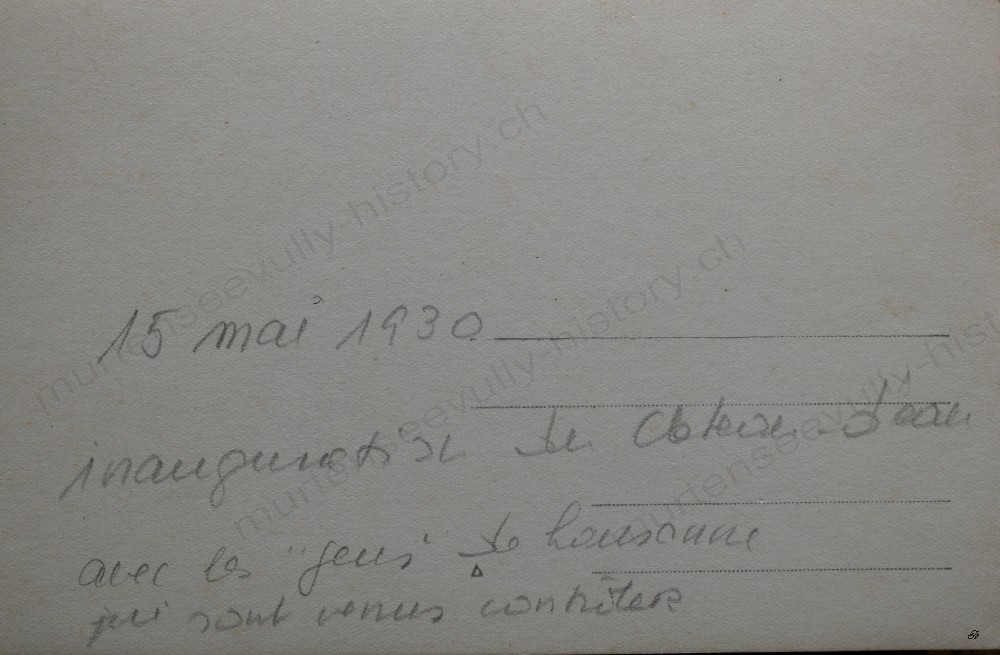 15 mai 1930
inauguration du Château d'eau
avec les "gens" de Lausanne
qui sont venus contrôler
murtenseevully-history.ch
murtenseevully-history.ch
murtenseevully-history.ch